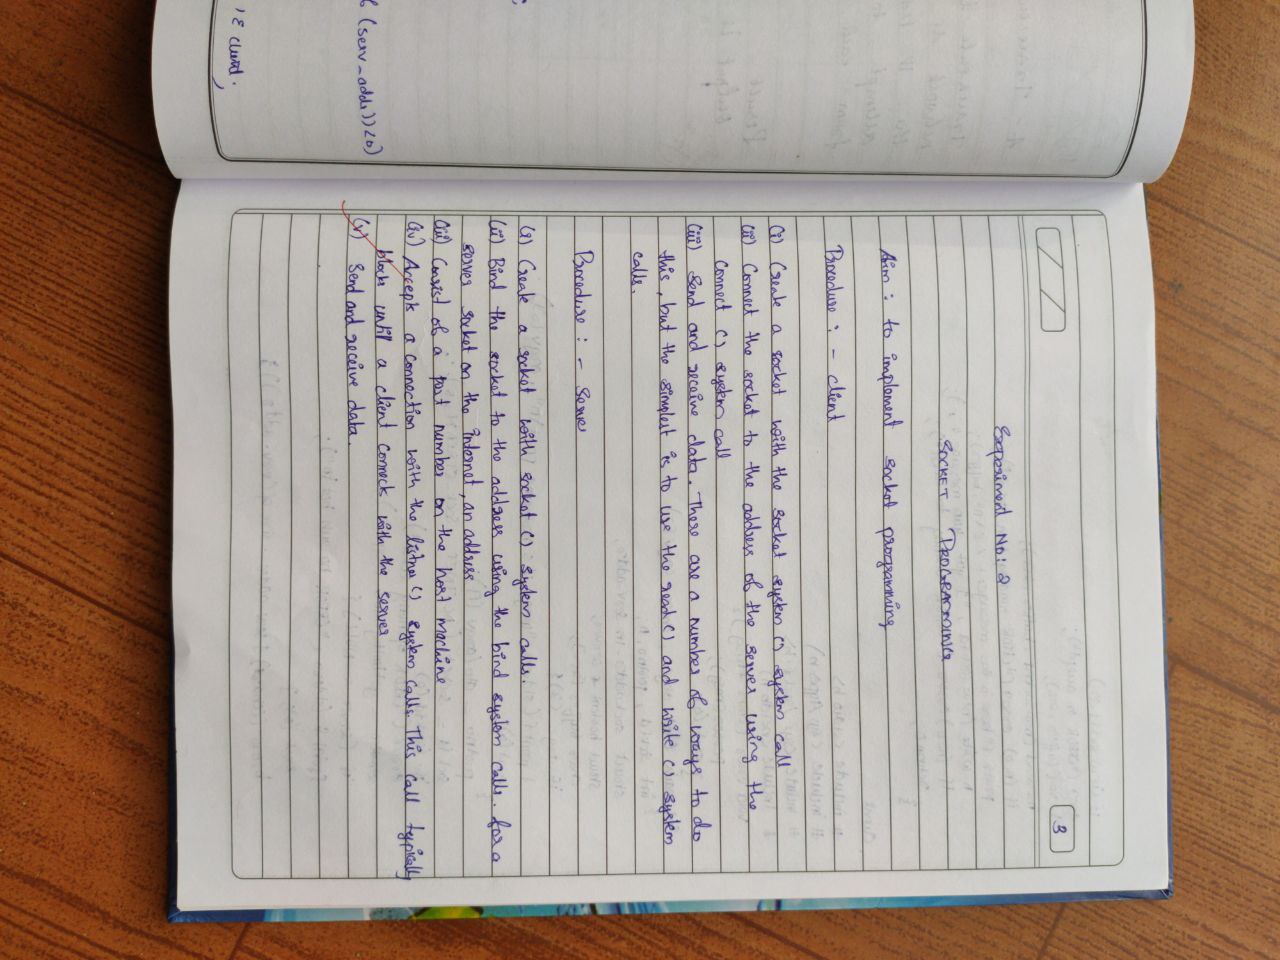 3
Experiment No: 2
SOCKET PROGRAMMING
Aim : to implement socket programming
Procedure : - client
(i) Create a socket with the socket system () system call
(ii) Connect the socket to the address of the server using the
connect () system call
(iii) Send and receive data. There are a number of ways to do
this, but the simplest is to use the read () and write () system
calls.
Procedure : - Server
(i) Create a socket with socket () system calls.
(ii) Bind the socket to the address using the bind system calls. for a
server socket on the internet, an address
(iii) Consist of a port number on the host machine
(iv) Accept a connection with the listner () system calls. This call typically
blocks until a client connects with the server
(v) Send and receive data.
(serv_addr)) < 0)
client,